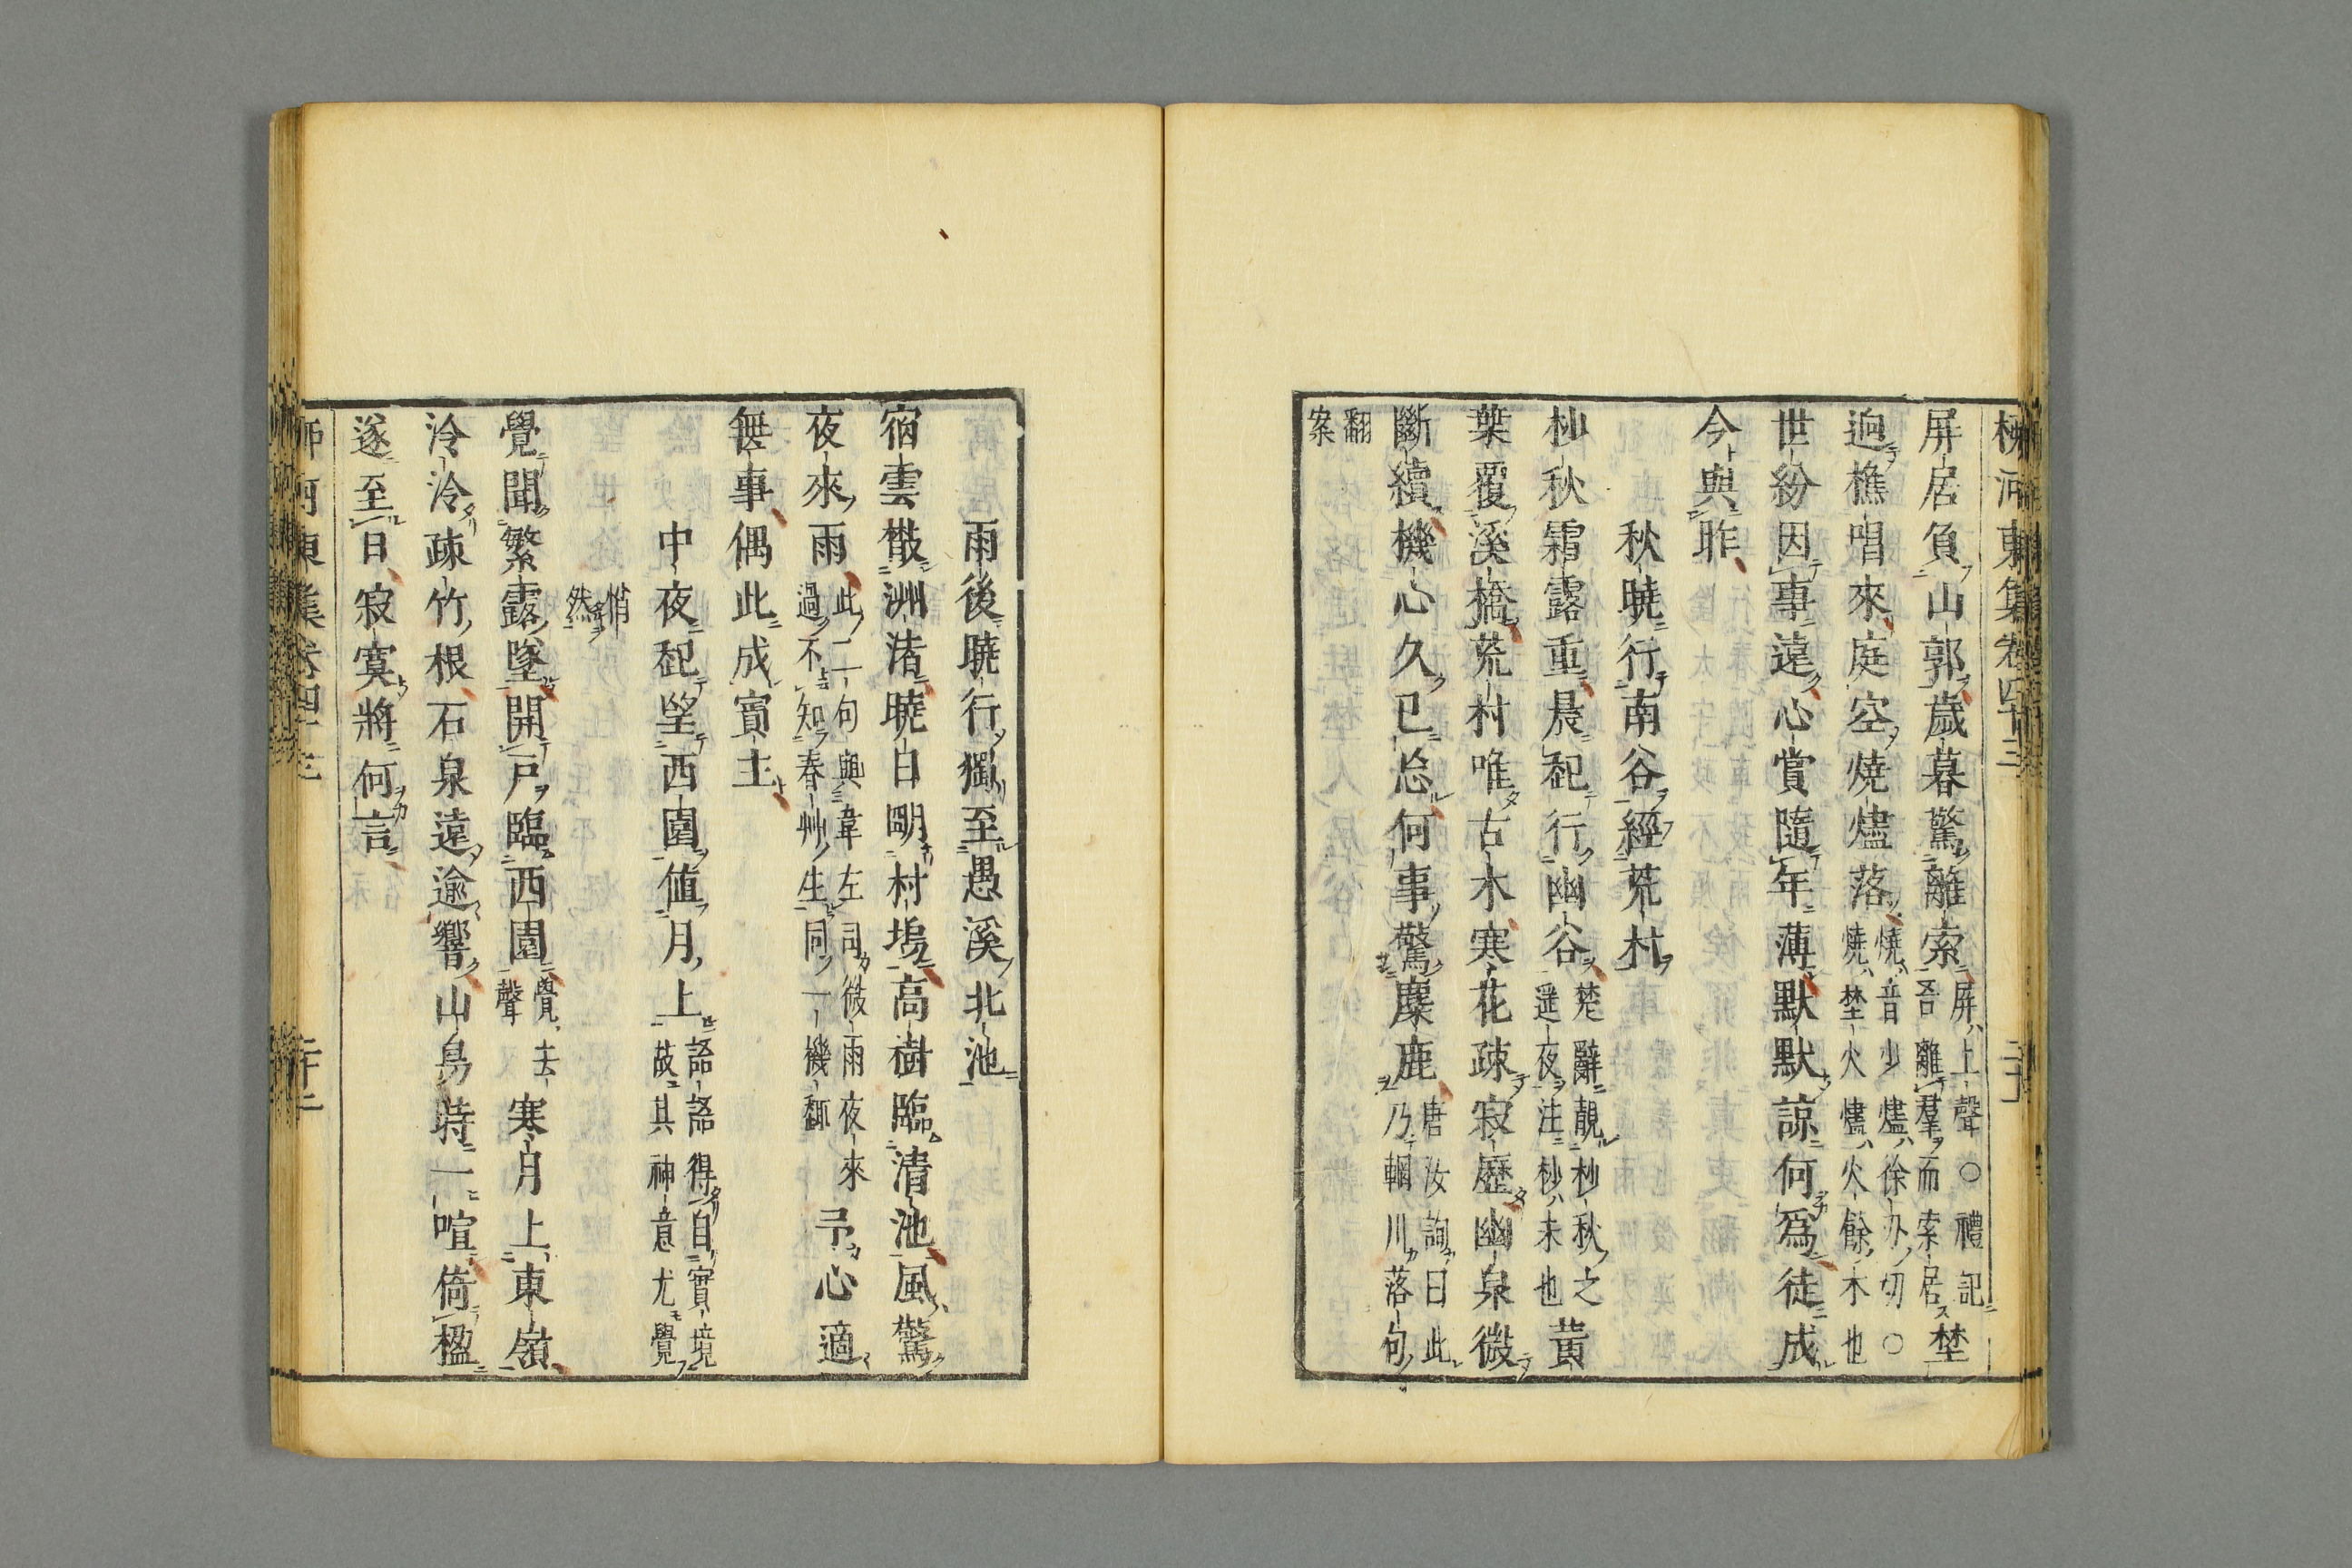 柳河東集卷四十三
屏居負山郭歲暮驚離索屏上聲○禮記吾離群而索居埜
逈樵唱來庭空燒燼落燒音少燼徐刃切○燒埜火燼火餘木也
世紛因事遠心賞隨年薄默默諒何爲徒成
今與昨
秋曉行南谷經荒村
杪秋霜露重晨起行幽谷楚辭靚杪秋之遥夜注杪末也黃
葉覆溪橋荒村唯古木寒花疎寂歷幽泉微
斷續機心久已忘何事驚麋鹿唐汝詢曰此乃輞川落句
翻案
雨後曉行獨至愚溪北池
宿雲散洲渚曉日明村塢高樹臨清池風驚
夜來雨此二句與韋左司微雨夜來過不知春艸生同一機䡄予心適
無事偶此成賓主
中夜起望西園值月上語語得自實境故其神意尤覺
悄然
覺聞繁露墜開戸臨西園覺去聲寒月上東嶺
泠泠疎竹根石泉遠逾響山鳥時一喧倚楹
遂至旦寂寞將何言
卷四十三
二十二